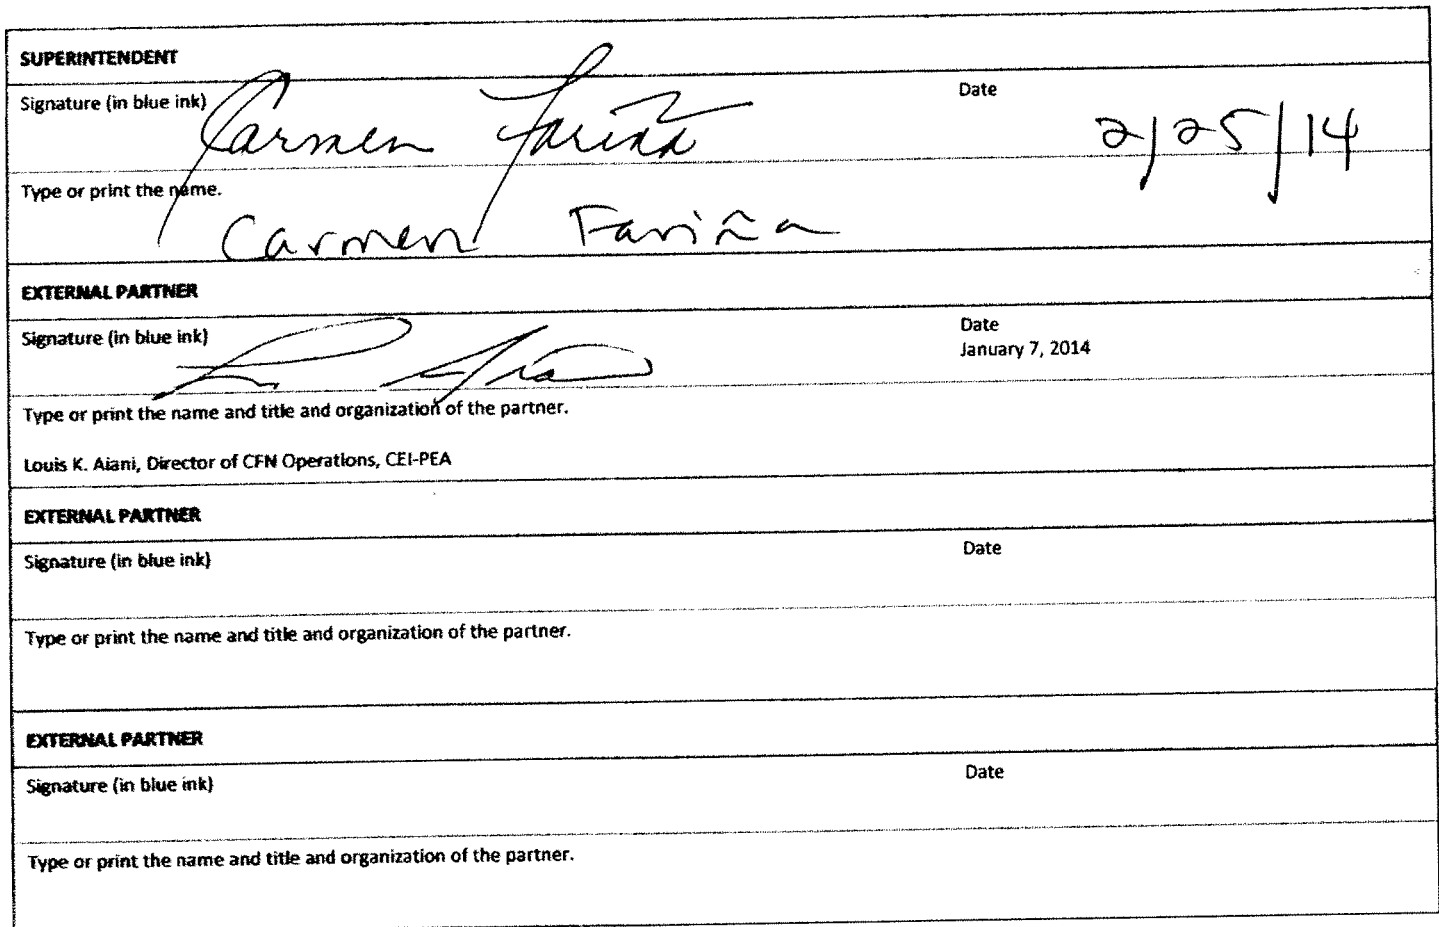 SUPERINTENDENT
Signature (in blue ink) Carmen Fariña Date 2/25/14
Type or print the name.
Carmen Fariña
EXTERNAL PARTNER
Signature (in blue ink) Date
January 7, 2014
Type or print the name and title and organization of the partner.
Louis K. Aiani, Director of CFN Operations, CEI-PEA
EXTERNAL PARTNER
Signature (in blue ink) Date
Type or print the name and title and organization of the partner.
EXTERNAL PARTNER
Signature (in blue ink) Date
Type or print the name and title and organization of the partner.